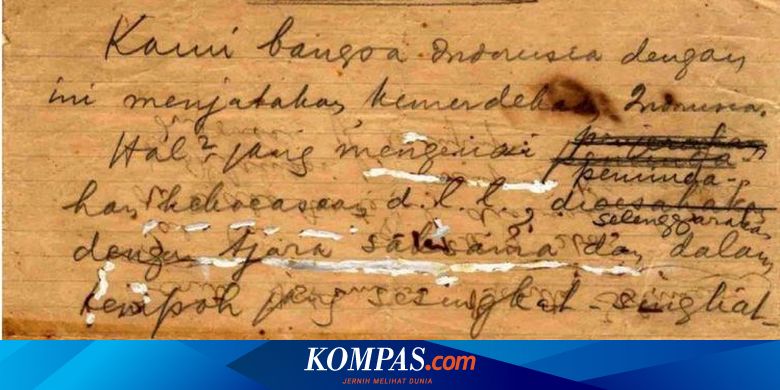 Kami bangsa Indonesia dengan
ini menjatakan kemerdekaan Indonesia.
Hal² jang mengenai penjerahan
pemindahan
peminda-
han kekoeasaan d.l.l., dioesahakan
selenggarakan
dengan tjara saksama dan dalam
tempoh jang sesingkat-singkat-
KOMPAS.com
JERNIH MELIHAT DUNIA